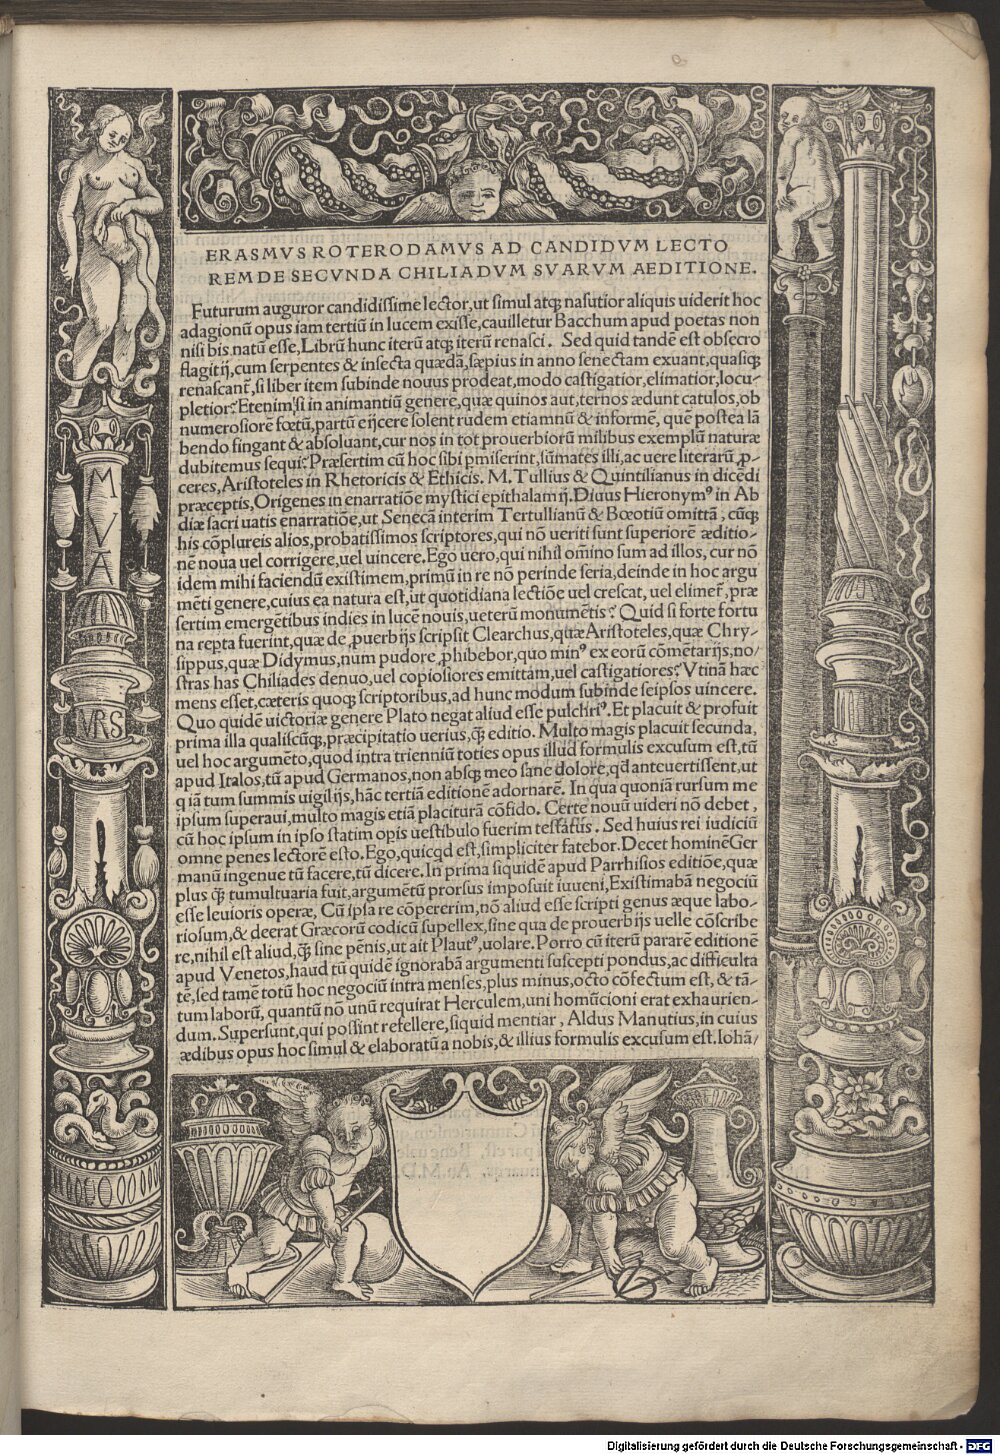 ERASMVS ROTERODAMVS AD CANDIDVM LECTO
REM DE SECVNDA CHILIADVM SVARVM AEDITIONE.
Futurum auguror candidissime lector, ut simul atq; nasutior aliquis uiderit hoc
adagionũ opus iam tertiũ in lucem exisse, cauilletur Bacchum apud poetas non
nisi bis natũ esse, Librũ hunc iterũ atq; iterũ renasci. Sed quid tandẽ est obsecro
flagitij, cum serpentes & insecta quædã, sæpius in anno senectam exuant, quasiq;
renascant̃, si liber item subinde nouus prodeat, modo castigatior, elimatior, locu-
pletior? Etenim si in animantiũ genere, quæ quinos aut, ternos ædunt catulos, ob
numerosiore fœtũ, partũ eijcere solent rudem etiamnũ & informẽ, quẽ postea lã
bendo fingant & absoluant, cur nos in tot prouerbiorũ milibus exemplũ naturæ
dubitemus sequi? Præsertim cũ hoc sibi ꝑmiserint, sũmates illi, ac uere literarũ ꝓ-
ceres, Aristoteles in Rhetoricis & Ethicis. M. Tullius & Quintilianus in dicẽdi
præceptis, Origenes in enarratiõe mystici epithalamij. Diuus Hieronymꝰ in Ab
diæ sacri uatis enarratiõe, ut Senecã interim Tertullianũ & Bœotiũ omittã, cũq;
his cõplureis alios, probatissimos scriptores, qui nõ ueriti sunt superiorẽ æditio-
nẽ noua uel corrigere, uel uincere. Ego uero, qui nihil oĩno sum ad illos, cur nõ
idem mihi faciendũ existimem, primũ in re nõ perinde seria, deinde in hoc argu
mẽti genere, cuius ea natura est, ut quotidiana lectiõe uel crescat, uel elimet̃, præ
sertim emergẽtibus indies in lucẽ nouis, ueterũ monumẽtis? Quid si forte fortu
na reꝑta fuerint, quæ de ꝓuerbijs scripsit Clearchus, quæ Aristoteles, quæ Chry-
sippus, quæ Didymus, num pudore ꝓhibebor, quo minꝰ ex eorũ cõmẽtarijs, no/
stras has Chiliades denuo, uel copiosiores emittam, uel castigatiores? Vtinã hæc
mens esset, cæteris quoq; scriptoribus, ad hunc modum subinde seipsos uincere.
Quo quidẽ uictoriæ genere Plato negat aliud esse pulchriꝰ. Et placuit & profuit
prima illa qualiscũq;, præcipitatio uerius, q̃ editio. Multo magis placuit secunda,
uel hoc argumẽto, quod intra trienniũ toties opus illud formulis excusum est, tũ
apud Italos, tũ apud Germanos, non absq; meo sane dolore, qd̃ anteuertissent, ut
q iã tum summis uigilijs, hãc tertiã editionẽ adornarẽ. In qua quoniã rursum me
ipsum superaui, multo magis etiã placiturã cõfido. Certe nouũ uideri nõ debet,
cũ hoc ipsum in ipso statim opis uestibulo fuerim testatus. Sed huius rei iudiciũ
omne penes lectorẽ esto. Ego, quicqd est, simpliciter fatebor. Decet hominẽ Ger
manũ ingenue tũ facere, tũ dicere. In prima siquidẽ apud Parrhisios editiõe, quæ
plus q̃ tumultuaria fuit, argumẽtũ prorsus imposuit iuueni, Existimabã negociũ
esse leuioris operæ, Cũ ipsa re cõpererim, nõ aliud esse scripti genus æque labo-
riosum, & deerat Græcorũ codicũ supellex, sine qua de prouerbijs uelle cõscribe
re, nihil est aliud, q̃ sine pẽnis, ut ait Plautꝰ, uolare. Porro cũ iterũ pararẽ editionẽ
apud Venetos, haud tũ quidẽ ignorabã argumenti suscepti pondus, ac difficulta
tẽ, sed tamẽ totũ hoc negociũ intra menses, plus minus, octo cõfectum est, & tã-
tum laborũ, quantũ nõ unũ requirat Herculem, uni homũcioni erat exhaurien-
dum. Supersunt, qui possint refellere, siquid mentiar, Aldus Manutius, in cuius
ædibus opus hoc simul & elaboratũ a nobis, & illius formulis excusum est. Iohã/
M
V
Ã
VRS
Digitalisierung gefördert durch die Deutsche Forschungsgemeinschaft - DFG